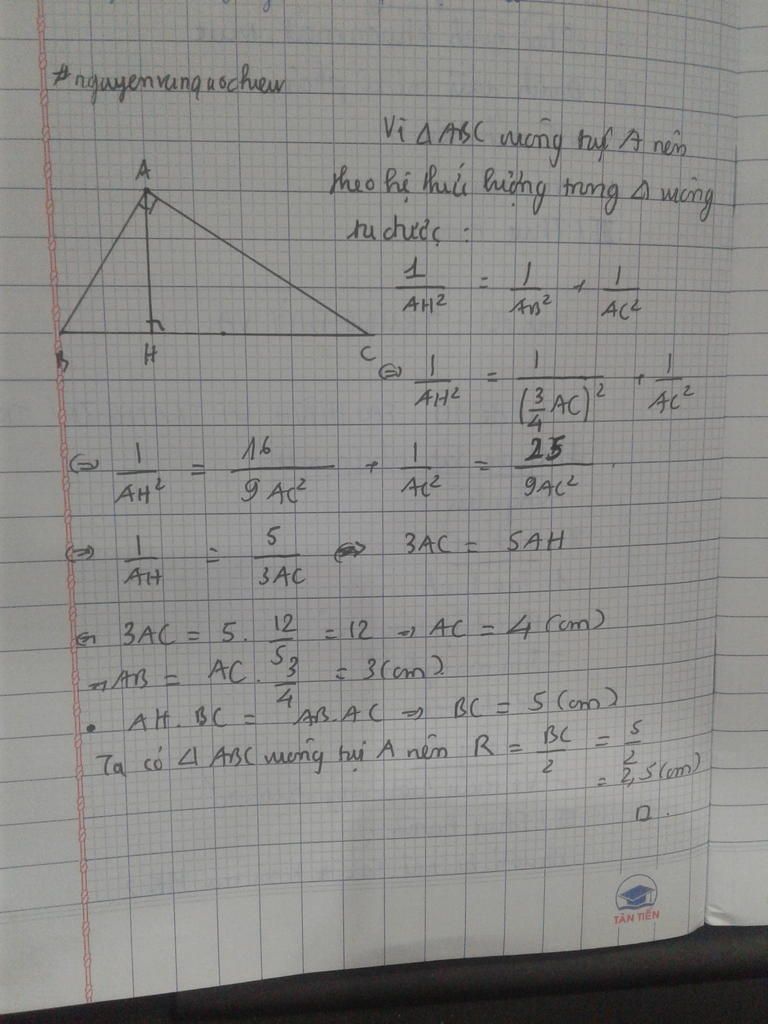 #nguyenvanquochieu
Vì Δ ABC vuông tại A nên
theo hệ thức lượng trong Δ vuông
ta được :
A
B
H
C
1/AH² = 1/AB² + 1/AC²
⇔ 1/AH² = 1/(3/4 AC)² + 1/AC²
⇔ 1/AH² = 16/9AC² + 1/AC² = 25/9AC²
⇔ 1/AH = 5/3AC ⇔ 3AC = 5AH
⇔ 3AC = 5 . 12/5 = 12 ⇒ AC = 4 (cm)
⇒ AB = AC . 3/4 = 3 (cm)
• AH . BC = AB . AC ⇒ BC = 5 (cm)
Ta có Δ ABC vuông tại A nên R = BC/2 = 5/2
= 2,5 (cm)
□ .
TÂN TIẾN